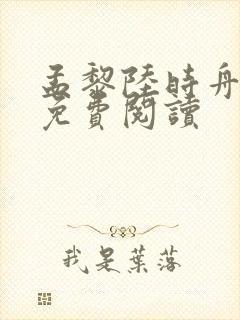 孟黎陸時舟
免費閱讀
我是葉落